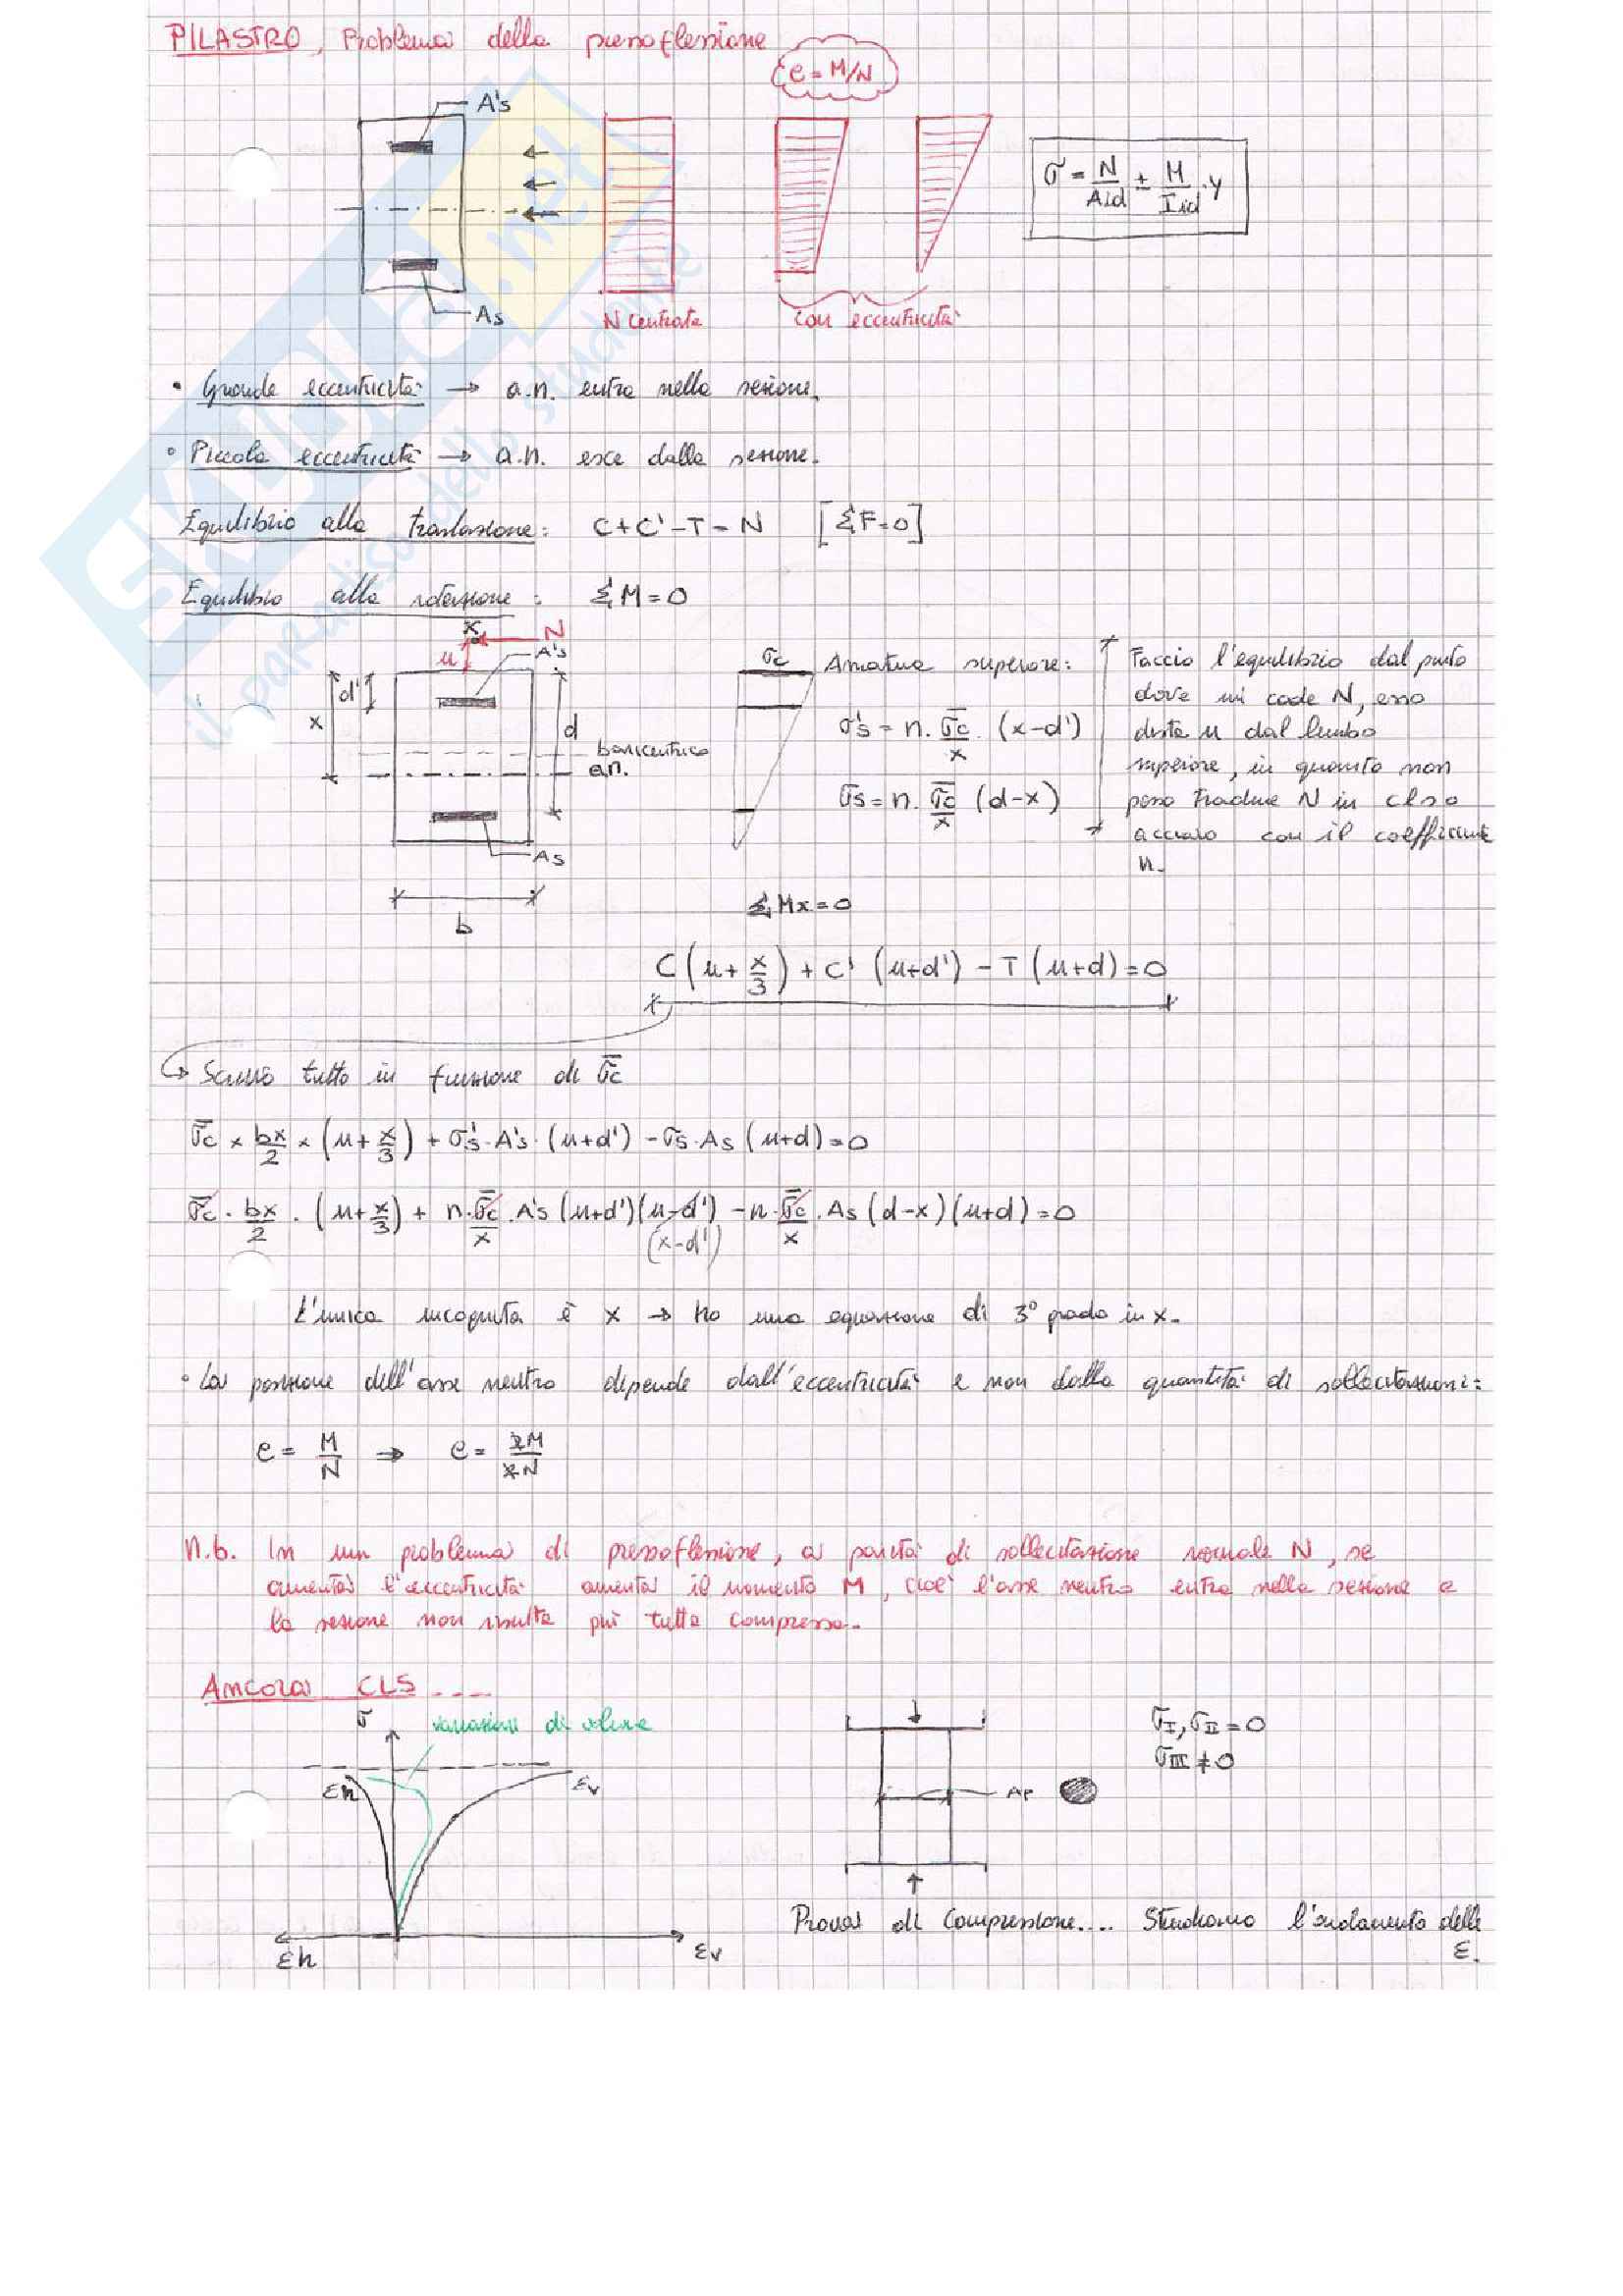 PILASTRO, Problema della pressoflessione
e = M/N
A's
σ = N/Aid ± M/Iid · y
As
N centrato
con eccentricità
• Grande eccentricità → a.n. entra nella sezione.
• Piccola eccentricità → a.n. esce dalla sezione.
Equilibrio alla traslazione: C+C'-T=N [ΣF=0]
Equilibrio alla rotazione: ΣM=0
x
N
u
A's
d'
x
d
baricentrico
a.n.
As
b
σc
Armatura superiore:
σ's = n · σ̄c/x · (x-d')
σs = n · σ̄c/x (d-x)
Faccio l'equilibrio dal punto
dove mi cade N, esso
dista u dal lembo
superiore, in quanto non
posso tradurre N in cls o
acciaio con il coefficiente
n.
ΣMx=0
C(u+x/3) + C'(u+d') - T(u+d)=0
↪ Scrivo tutto in funzione di σ̄c
σ̄c × bx/2 × (u+x/3) + σ's·A's·(u+d') - σs·As(u+d)=0
σ̄c · bx/2 · (u+x/3) + n·σ̄c/x · A's(u+d')(u-d') - n·σ̄c/x · As(d-x)(u+d)=0
(x-d')
L'unica incognita è x → ho una equazione di 3° grado in x.
• La posizione dell'asse neutro dipende dall'eccentricità e non dalla quantità di sollecitazioni:
e = M/N ⇒ e = 2M/2N
n.b. In un problema di pressoflessione, a parità di sollecitazione normale N, se
aumenta l'eccentricità aumenta il momento M, cioè l'asse neutro entra nella sezione e
la sezione non risulta più tutta compressa.
Ancora CLS ....
σ
variazioni di volume
εh
εv
εh
εv
AF
σI, σII = 0
σIII ≠ 0
Prova di Compressione.... Studiamo l'andamento delle
ε.
SKUOLA.net
il paradiso dello studente